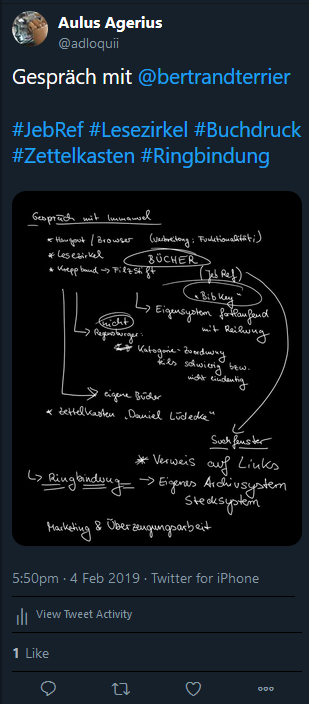 Aulus Agerius
@adloquii
Gespräch mit @bertrandterrier
#JebRef #Lesezirkel #Buchdruck
#Zettelkasten #Ringbindung
Gespräch mit Immanuel
* Hangout / Browser (Verbreitung; Funktionalität)
* Lesezirkel BÜCHER
* Kreppband → Filzstift (JebRef)
"BibKey"
↳ Eigensystem fortlaufend
mit Reihung
nicht
↳ Regensburger:
Kategorie-Zuordnung
teils schwierig bzw.
nicht eindeutig
→ eigene Bücher
* Zettelkasten "Daniel Lüdecke"
Suchfenster
* Verweis auf Links
↳ Ringbindung → Eigenes Archivsystem
Stecksystem
Marketing & Überzeugungsarbeit
5:50pm · 4 Feb 2019 · Twitter for iPhone
View Tweet Activity
1 Like